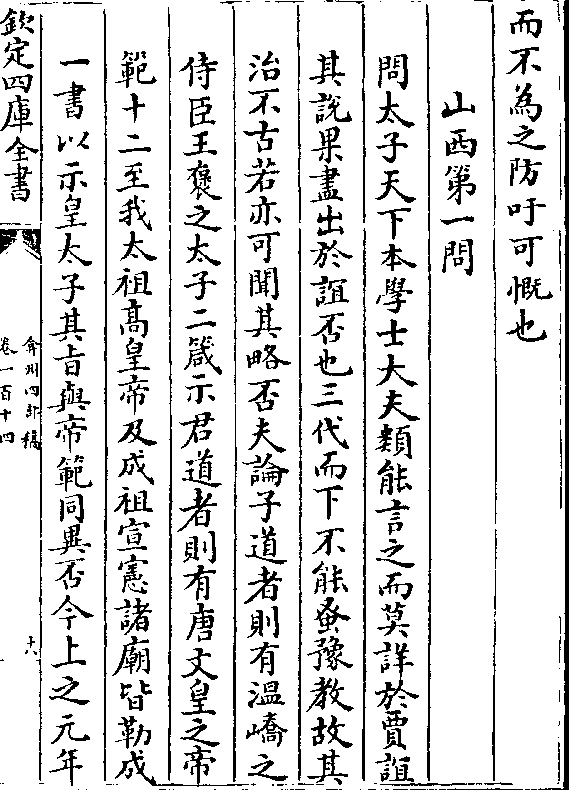 而不為之防吁可慨也
山西第一問
問太子天下本學士大夫類能言之而莫詳於賈誼
其說果盡出於誼否也三代而下不能蚤豫教故其
治不古若亦可聞其略否夫論子道者則有溫嶠之
侍臣王襃之太子二箴示君道者則有唐文皇之帝
範十二至我太祖髙皇帝及成祖宣憲諸廟皆勒成
一書以示皇太子其㫖與帝範同異否今上之元年
欽定四庫全書
弇州四部稿
卷一百十四
十八